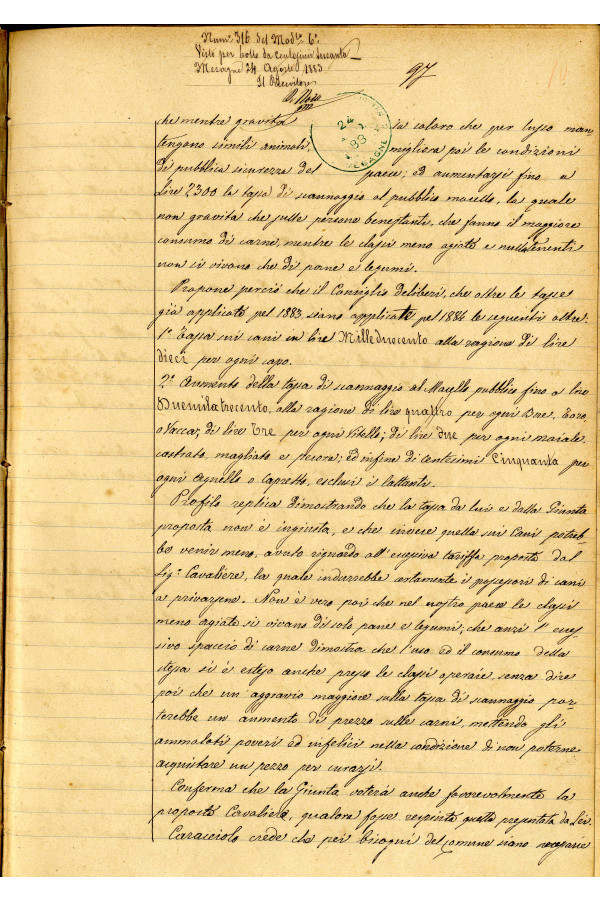 Num.° 316 del Mod.lo 6°
Visto per bollo da centesimi sessanta
Mesagne 24 Agosto 1883
Il Ricevitore
97
24
83
MESAGNE
che mentre gravita su coloro che per lusso man-
tengono simili animali, migliora poi le condizioni
di pubblica sicurezza del paese; ed aumentarsi fino a
Lire 2300 la tassa di scannaggio al pubblico macello, la quale
non gravita che sulle persone benestanti, che fanno il maggiore
consumo di carne, mentre le classi meno agiate e nullatenenti
non si vivono che di pane e legumi.
Propone perciò che il Consiglio deliberi, che oltre le tasse
già applicate pel 1883, siano applicate pel 1884 le seguenti altre:
1° Tassa sui cani in lire Milleduecento alla ragione di lire
dieci per ogni capo.
2° Aumento della tassa di scannaggio al Macello pubblico fino a lire
Duemilatrecento, alla ragione di lire quattro per ogni Bue, Toro,
o Vacca; di lire Tre per ogni Vitello; di lire due per ogni maiale
castrato, magliato e pecora; ed infine di centesimi Cinquanta per
ogni Agnello o Capretto, esclusi i lattanti.
Profilo replica dimostrando che la tassa da lui e dalla Giunta
proposta non è ingiusta, e che invece quella sui Cani potreb-
be venir meno, avuto riguardo all'eccessiva tariffa proposta dal
Sig.r Cavaliere, la quale indurrebbe certamente i possessori di cani
a privarsene. Non è vero poi che nel nostro paese le classi
meno agiate si vivano di solo pane e legumi; che anzi l'ecces-
sivo spaccio di carne dimostra che l'uso ed il consumo della
stessa si è esteso anche presso le classi operaie, senza dire
poi che un aggravio maggiore sulla tassa di scannaggio por-
terebbe un aumento di prezzo sulle carni, mettendo gli
ammalati poveri ed infelici nella condizione di non poterne
acquistare un pezzo per curarsi.
Conferma che la Giunta voterà anche favorevolmente la
proposta Cavaliere, qualora fosse respinta quella presentata da Lei.
Caracciolo crede che pei bisogni del comune siano necessarie